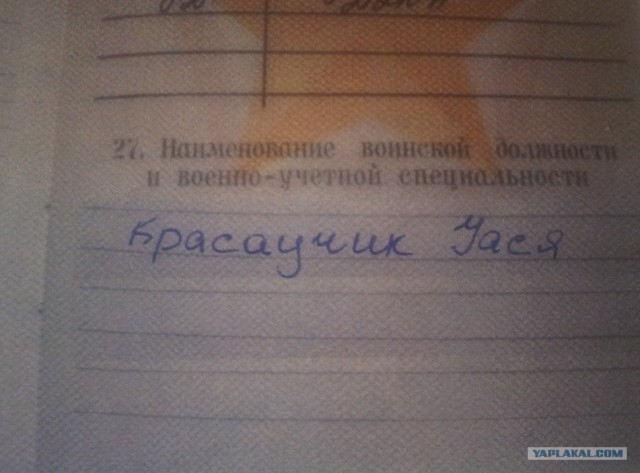 27. Наименование воинской должности
и военно-учетной специальности
Красаучик Уася
YAPLAKAL.COM